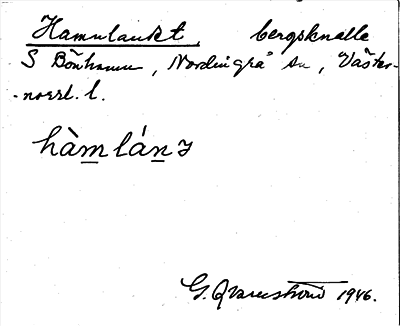 Hamnlandet, bergsknalle
S Bönhamn, Nordingrå sn, Väster-
-norrl. l.
hàmlánʒ
G. Qvarnström 1946.